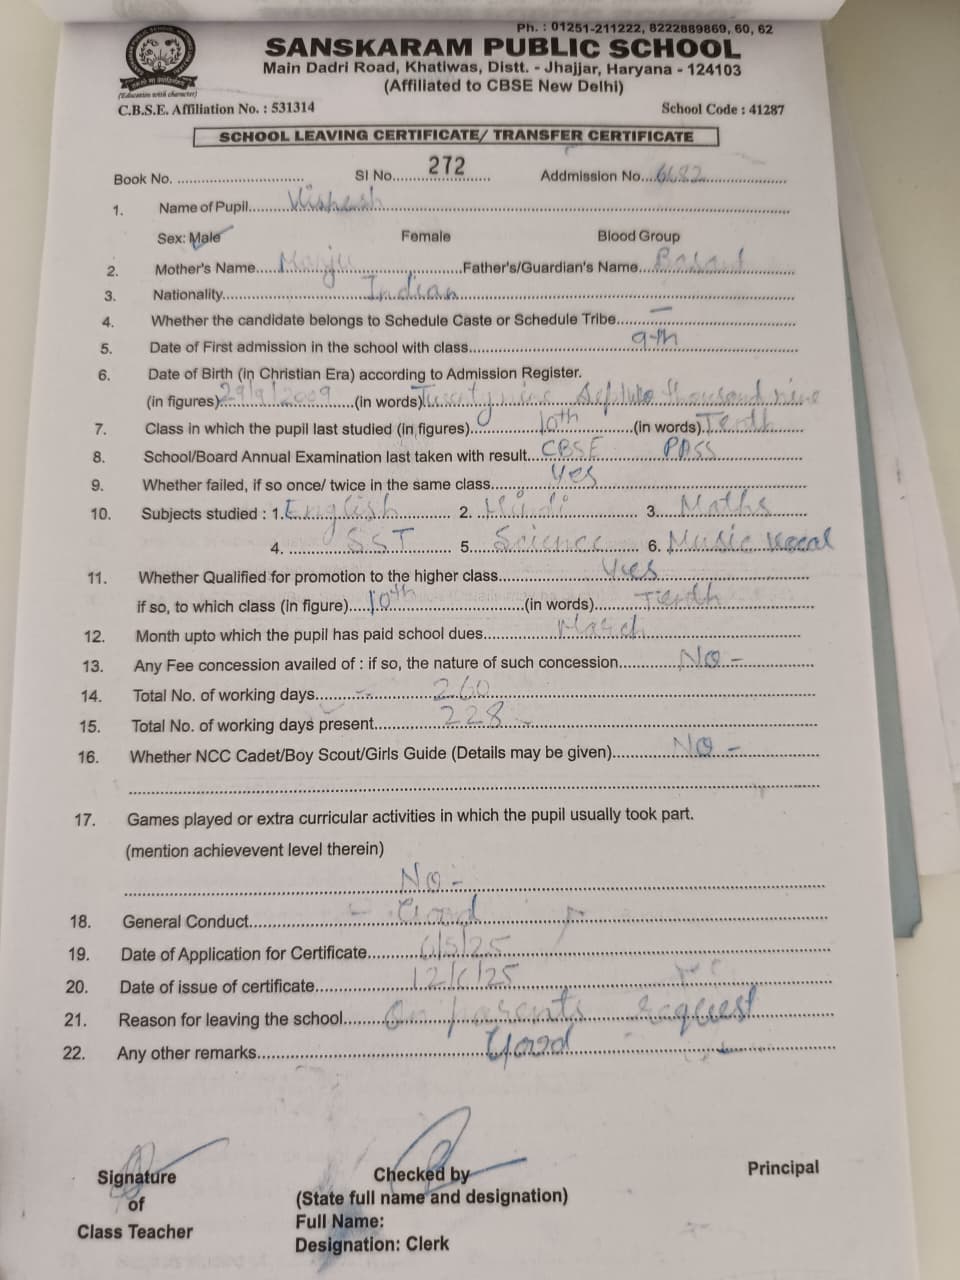 Ph. : 01251-211222, 8222889869, 60, 62
SANSKARAM PUBLIC SCHOOL
Main Dadri Road, Khatiwas, Distt. - Jhajjar, Haryana - 124103
(Affiliated to CBSE New Delhi)
(Education with character)
C.B.S.E. Affiliation No. : 531314 School Code : 41287
SCHOOL LEAVING CERTIFICATE/ TRANSFER CERTIFICATE
Book No. Sl No. 272 Addmission No. 6682
1. Name of Pupil
Sex: Male Female Blood Group
2. Mother's Name Manju Father's/Guardian's Name
3. Nationality Indian
4. Whether the candidate belongs to Schedule Caste or Schedule Tribe —
5. Date of First admission in the school with class 9th
6. Date of Birth (in Christian Era) according to Admission Register.
(in figures) 29/9/2009 (in words) Twenty nine thousand nine
7. Class in which the pupil last studied (in figures) 10th (in words) Tenth
8. School/Board Annual Examination last taken with result CBSE PASS
9. Whether failed, if so once/ twice in the same class Yes
10. Subjects studied : 1. English 2. Hindi 3. Maths
4. SST 5. Science 6. Music Vocal
11. Whether Qualified for promotion to the higher class Yes
if so, to which class (in figure) 10th (in words) Tenth
12. Month upto which the pupil has paid school dues March
13. Any Fee concession availed of : if so, the nature of such concession No -
14. Total No. of working days 260
15. Total No. of working days present 228
16. Whether NCC Cadet/Boy Scout/Girls Guide (Details may be given) NO -
17. Games played or extra curricular activities in which the pupil usually took part.
(mention achievevent level therein)
No -
18. General Conduct Good
19. Date of Application for Certificate
20. Date of issue of certificate
21. Reason for leaving the school On parents request
22. Any other remarks Good
Signature
of
Class Teacher
Checked by
(State full name and designation)
Full Name:
Designation: Clerk
Principal